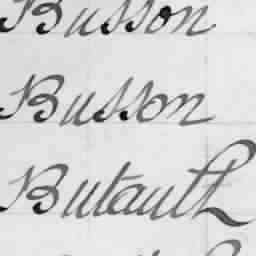 Busson
Busson
Butault